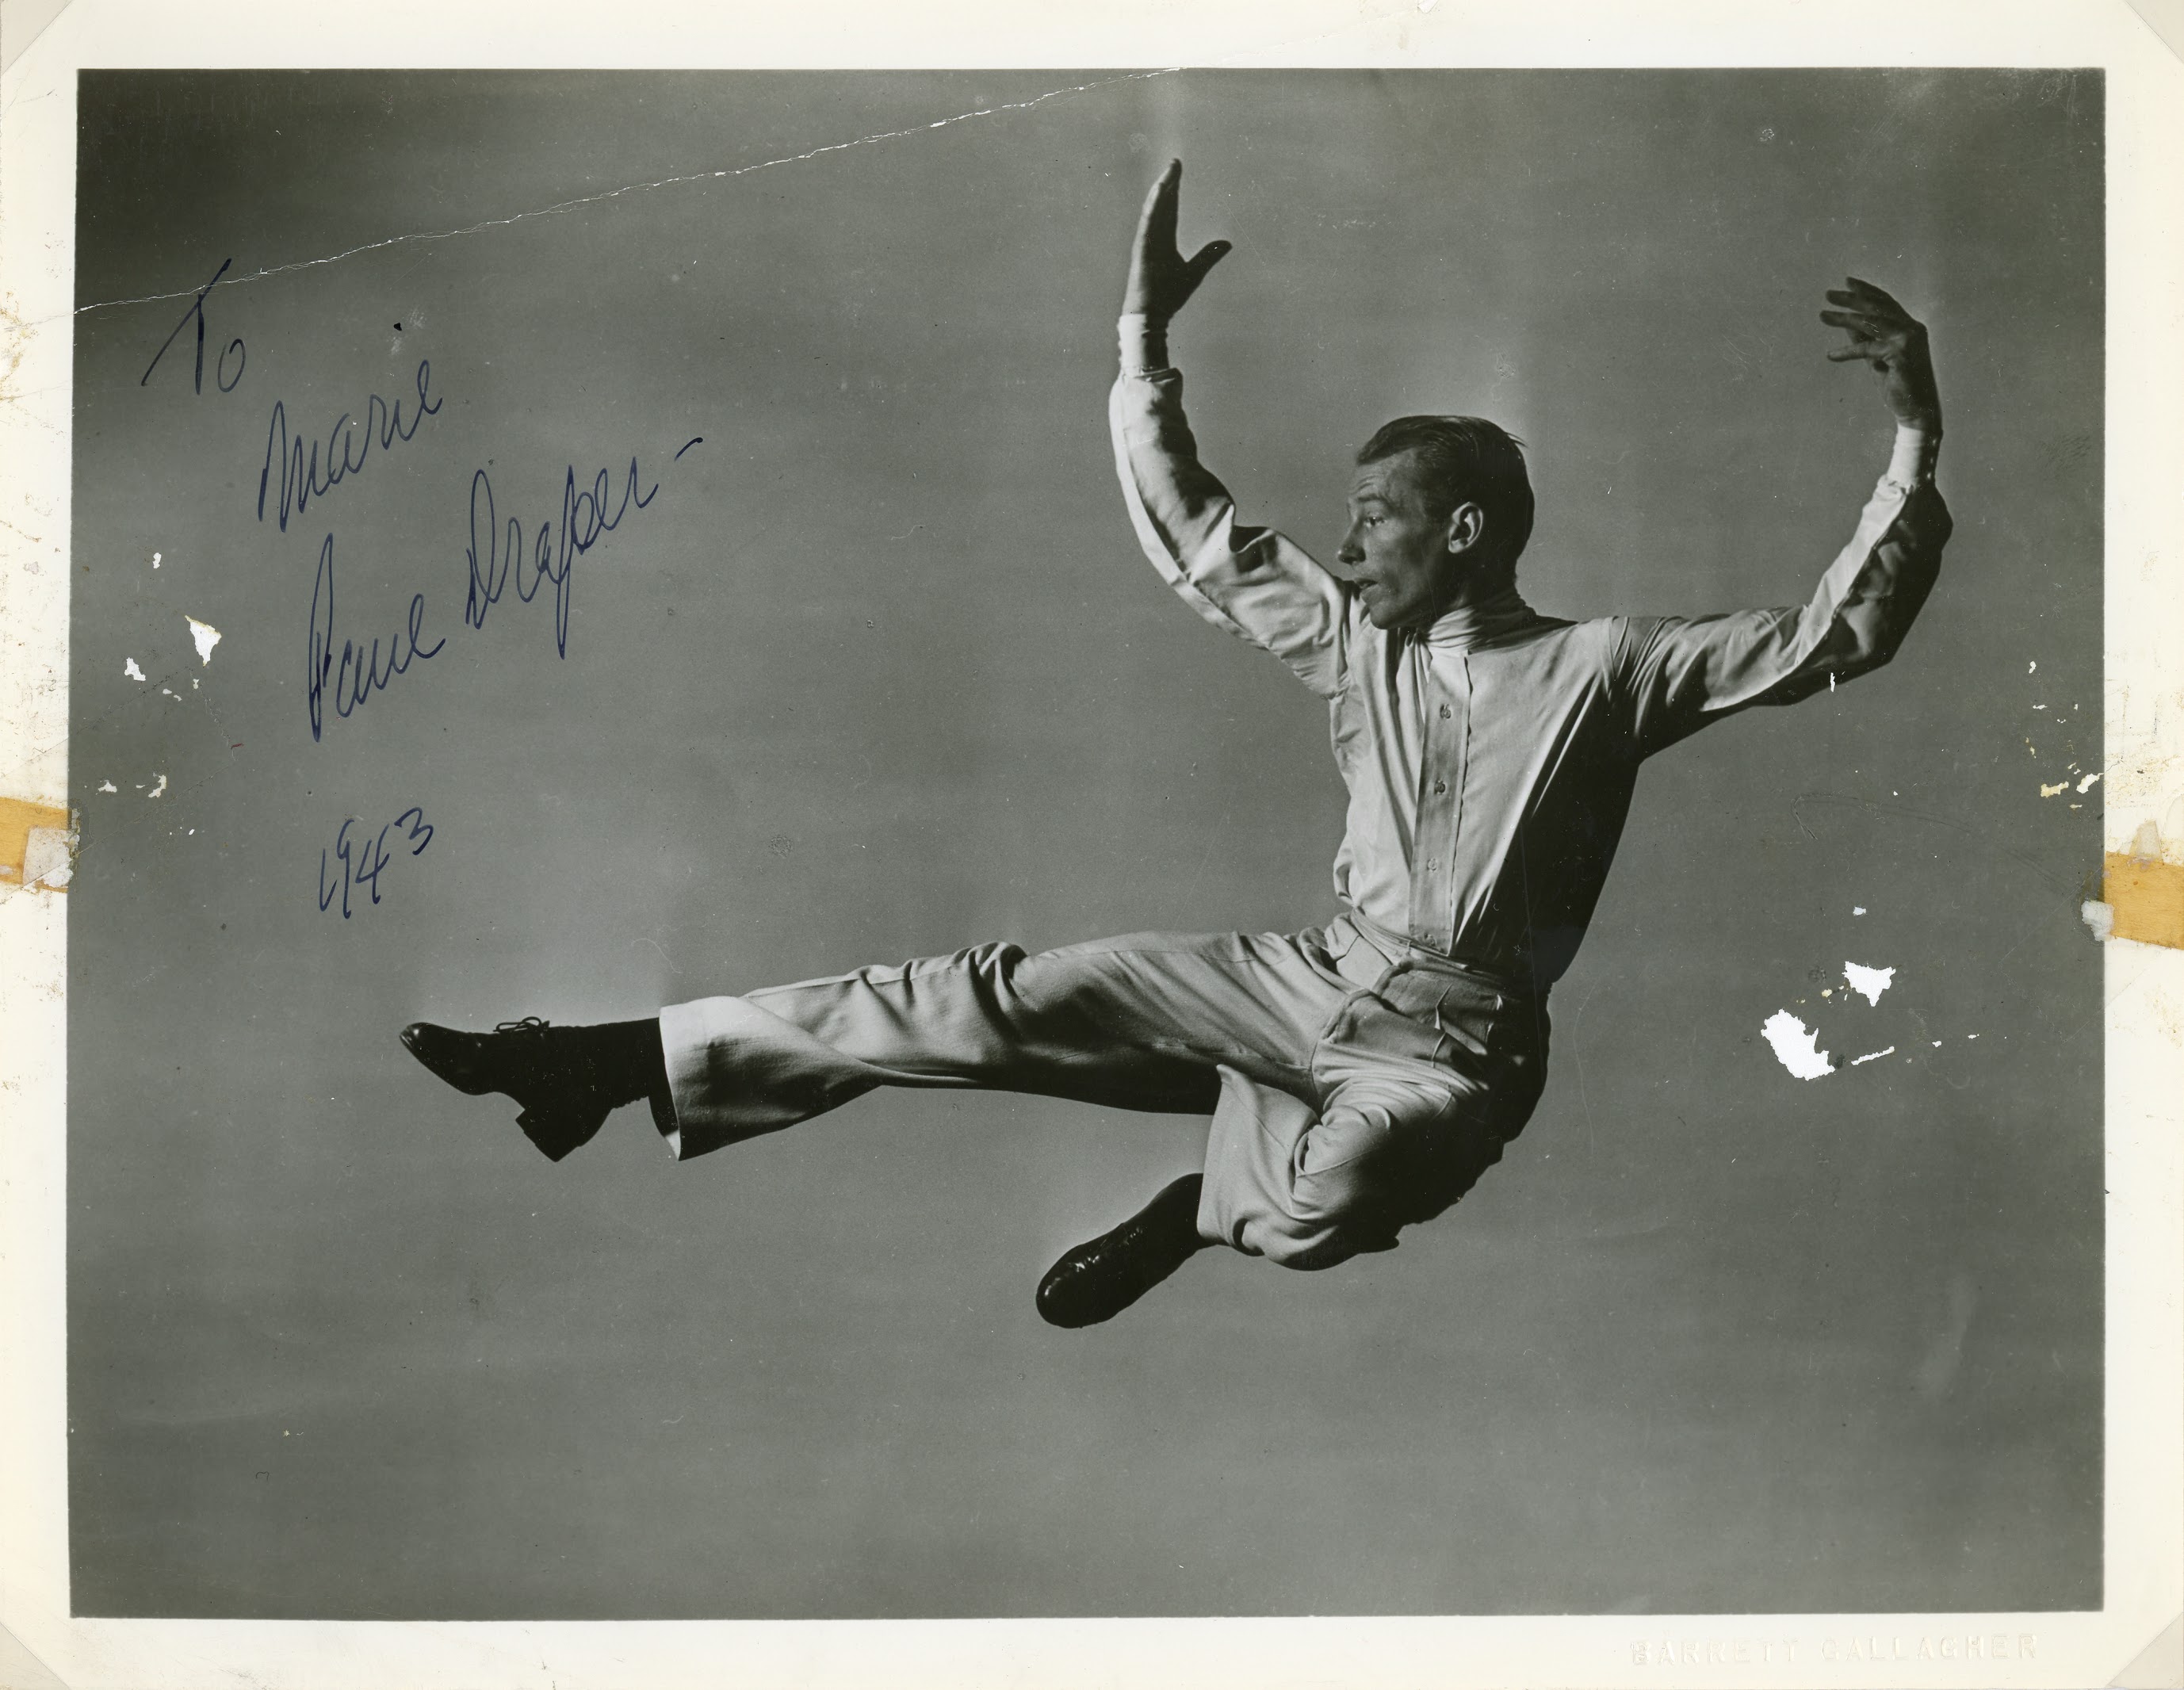 To
Marie
Paul Draper -
1943
BARRETT GALLAGHER